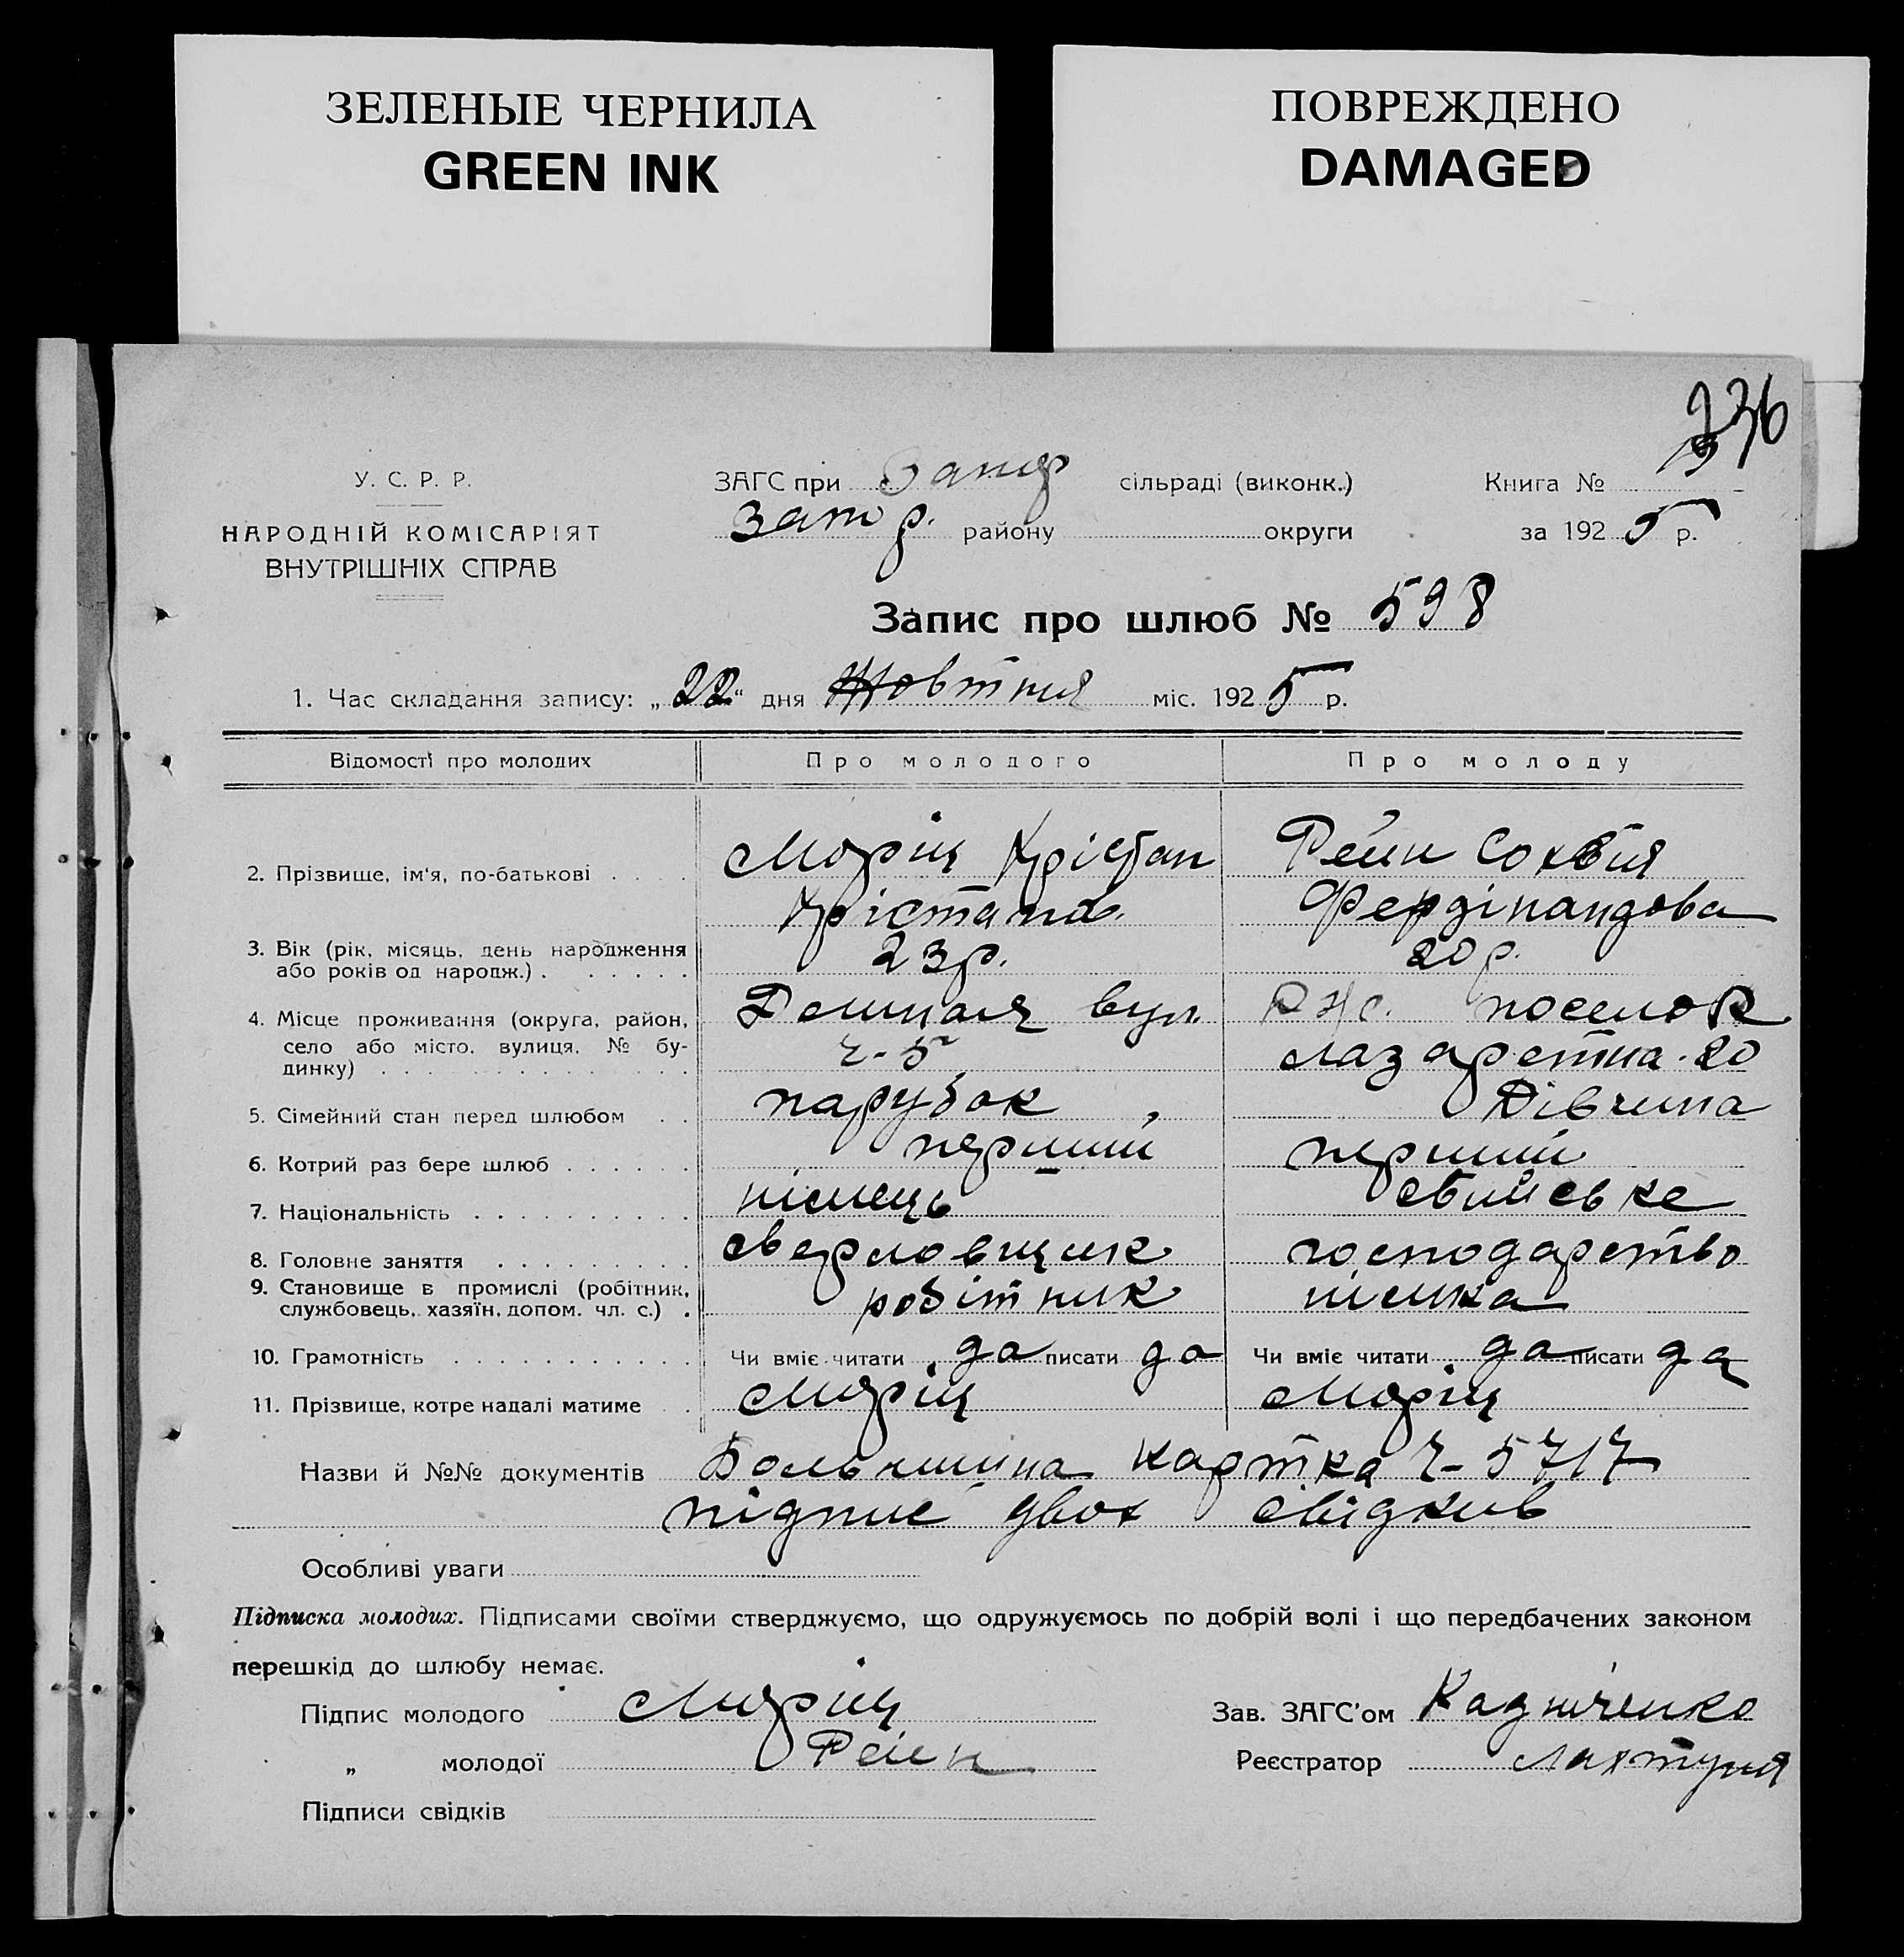 ЗЕЛЕНЫЕ ЧЕРНИЛА
GREEN INK
ПОВРЕЖДЕНО
DAMAGED
236
У. С. Р. Р.
НАРОДНІЙ КОМІСАРІЯТ
ВНУТРІШНІХ СПРАВ
ЗАГС при сільраді (виконк.)
Затр. району округи
Книга №
за 1925 р.
Запис про шлюб № 598
1. Час складання запису: „22“ дня Жовтня міс. 1925 р.
Відомості про молодих Про молодого Про молоду
2. Прізвище, ім'я, по-батькові Моріц Крістан Рейн Сохвія
Крістана. Фердінандова
3. Вік (рік, місяць, день народження 23 р. 20 р.
або років од народж.)
4. Місце проживання (округа, район, вул. поселок
село або місто, вулиця, № бу- Ч-5 Лазаретна. 20
динку)
5. Сімейний стан перед шлюбом парубок Дівчина
6. Котрий раз бере шлюб перший перший
7. Національність німець
8. Головне заняття сверловщик господарство
9. Становище в промислі (робітник, робітник німка
службовець, хазяїн, допом. чл. с.)
10. Грамотність Чи вміє читати да писати да Чи вміє читати да писати да
11. Прізвище, котре надалі матиме Моріц Моріц
Назви й №№ документів картка Ч-5717
підпис двох свідків
Особливі уваги
Підписка молодих. Підписами своїми стверджуємо, що одружуємось по добрій волі і що передбачених законом
перешкід до шлюбу немає.
Підпис молодого Моріц
„ молодої Рейн
Підписи свідків
Зав. ЗАГС'ом
Реєстратор